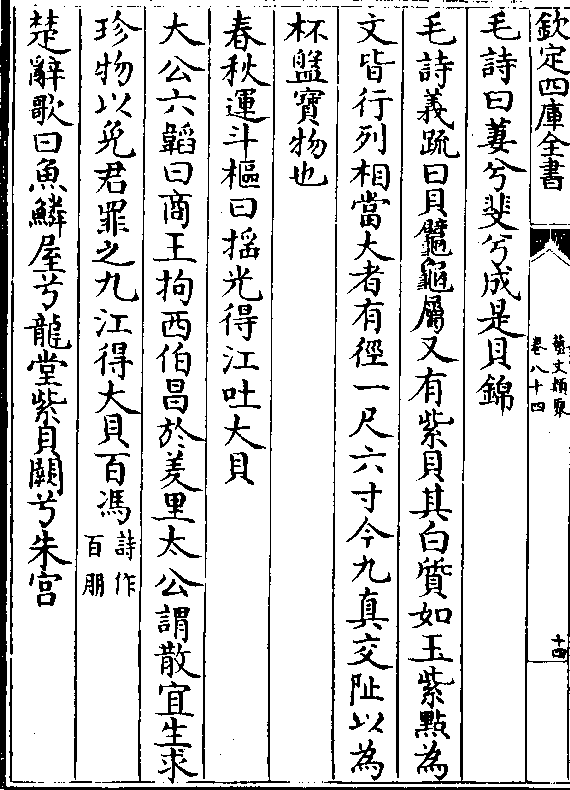 欽定四庫全書
藝文類聚
卷八十四
十四
毛詩曰萋兮斐兮成是貝錦
毛詩義疏曰貝鼊龜屬又有紫貝其白質如玉紫點為
文皆行列相當大者有徑一尺六寸今九真交阯以為
杯盤寶物也
春秋運斗樞曰揺光得江吐大貝
大公六韜曰商王拘西伯昌於羑里太公謂散宜生求
珍物以免君罪之九江得大貝百馮詩作百朋
楚辭歌曰魚鱗屋兮龍堂紫貝闕兮朱宫